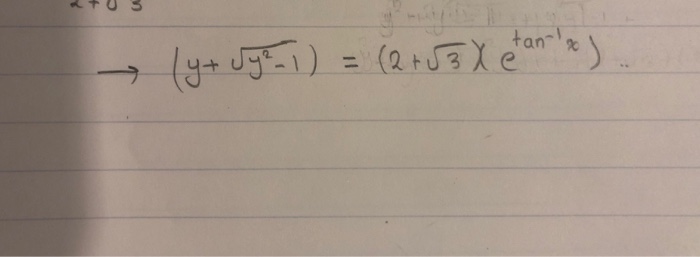 2+√3
→ (y+ √y²-1) = (2+√3)(e^tan⁻¹x) ..